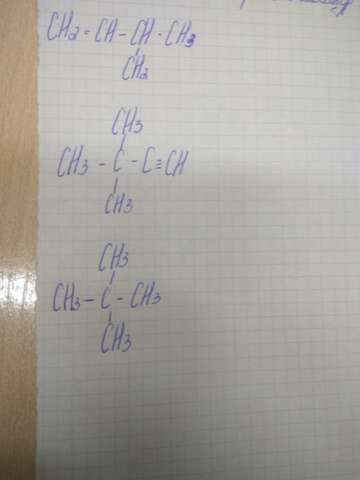 CH₂=CH-CH-CH₃
CH₂
CH₃
CH₃-C-C≡CH
CH₃
CH₃
CH₃-C-CH₃
CH₃